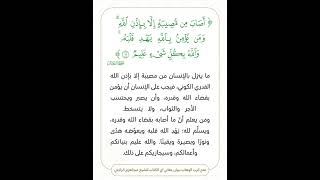 ﴿ مَا أَصَابَ مِن مُّصِيبَةٍ إِلَّا بِإِذْنِ اللَّهِ ۗ
وَمَن يُؤْمِن بِاللَّهِ يَهْدِ قَلْبَهُ ۚ
وَاللَّهُ بِكُلِّ شَيْءٍ عَلِيمٌ ﴾
ما ينزل بالإنسان من مصيبة إلا بإذن الله
القدري الكوني، فيجب على الإنسان أن يؤمن
بقضاء الله وقدره، وأن يصبر ويحتسب
الأجر والثواب، ولا يتسخط.
ومن يعلم أنّ ما أصابه بقضاء الله وقدره،
ويسلّم له: يَهْدِ الله قلبه ويعوّضه هدًى
ونورًا وبصيرةً ويقينًا. والله عليم بنياتكم
وأعمالكم، وسيجازيكم على ذلك.